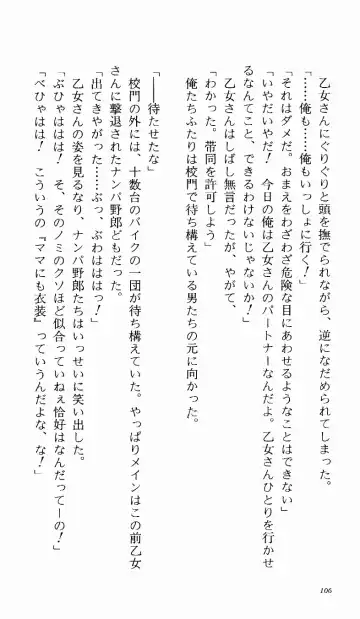 乙女さんにぐりぐりと頭を撫でられながら、逆になだめられてしまった。
「……俺も……俺もいっしょに行く！」
「それはダメだ。おまえをわざわざ危険な目にあわせるようなことはできない」
「いやだいやだ！　今日の俺は乙女さんのパートナーなんだよ。乙女さんひとりを行かせ
るなんてこと、できるわけないじゃないか！」
乙女さんはしばし無言だったが、やがて、
「わかった。帯同を許可しよう」
俺たちふたりは校門で待ち構えている男たちの元に向かった。
「――待たせたな」
校門の外には、十数台のバイクの一団が待ち構えていた。やっぱりメインはこの前乙女
さんに撃退されたナンパ野郎どもだった。
「出てきやがった……ぶっ、ぶわははは っ！」
乙女さんの姿を見るなり、ナンパ野郎たちはいっせいに笑い出した。
「ぶひゃははは！　そ、そのノミのクソほど似合っていねぇ恰好はなんだってーの！」
「べひゃはは！　こういうの『ママにも衣装』っていうんだよな、な！」
106